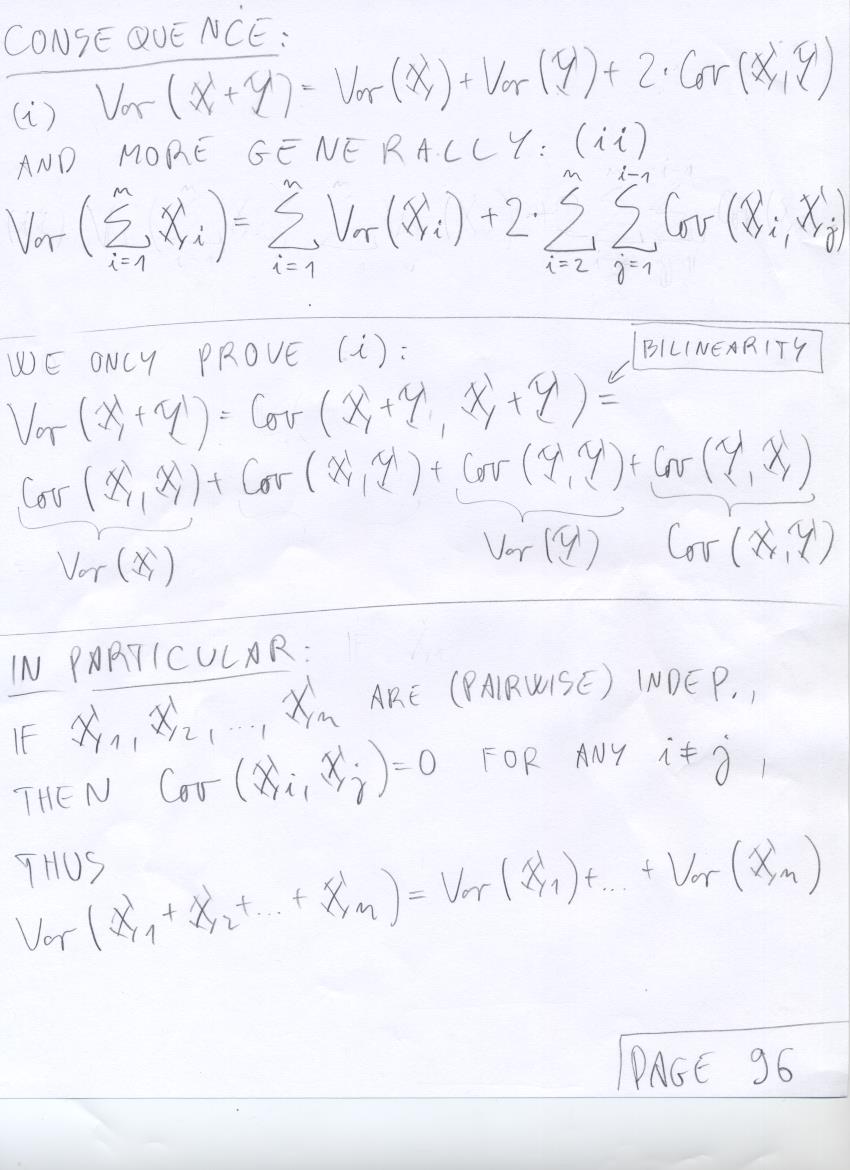 CONSEQUENCE:
(i) Var(X+Y) = Var(X) + Var(Y) + 2·Cov(X,Y)
AND MORE GENERALLY: (ii)
Var(∑_{i=1}^{n} X_i) = ∑_{i=1}^{n} Var(X_i) + 2·∑_{i=2}^{n} ∑_{j=1}^{i-1} Cov(X_i, X_j)
WE ONLY PROVE (i): BILINEARITY
Var(X+Y) = Cov(X+Y, X+Y) =
Cov(X,X) + Cov(X,Y) + Cov(Y,Y) + Cov(Y,X)
Var(X) Var(Y) Cov(X,Y)
IN PARTICULAR:
IF X_1, X_2, ..., X_n ARE (PAIRWISE) INDEP.,
THEN Cov(X_i, X_j) = 0 FOR ANY i ≠ j,
THUS
Var(X_1 + X_2 + ... + X_n) = Var(X_1) + ... + Var(X_n)
PAGE 96